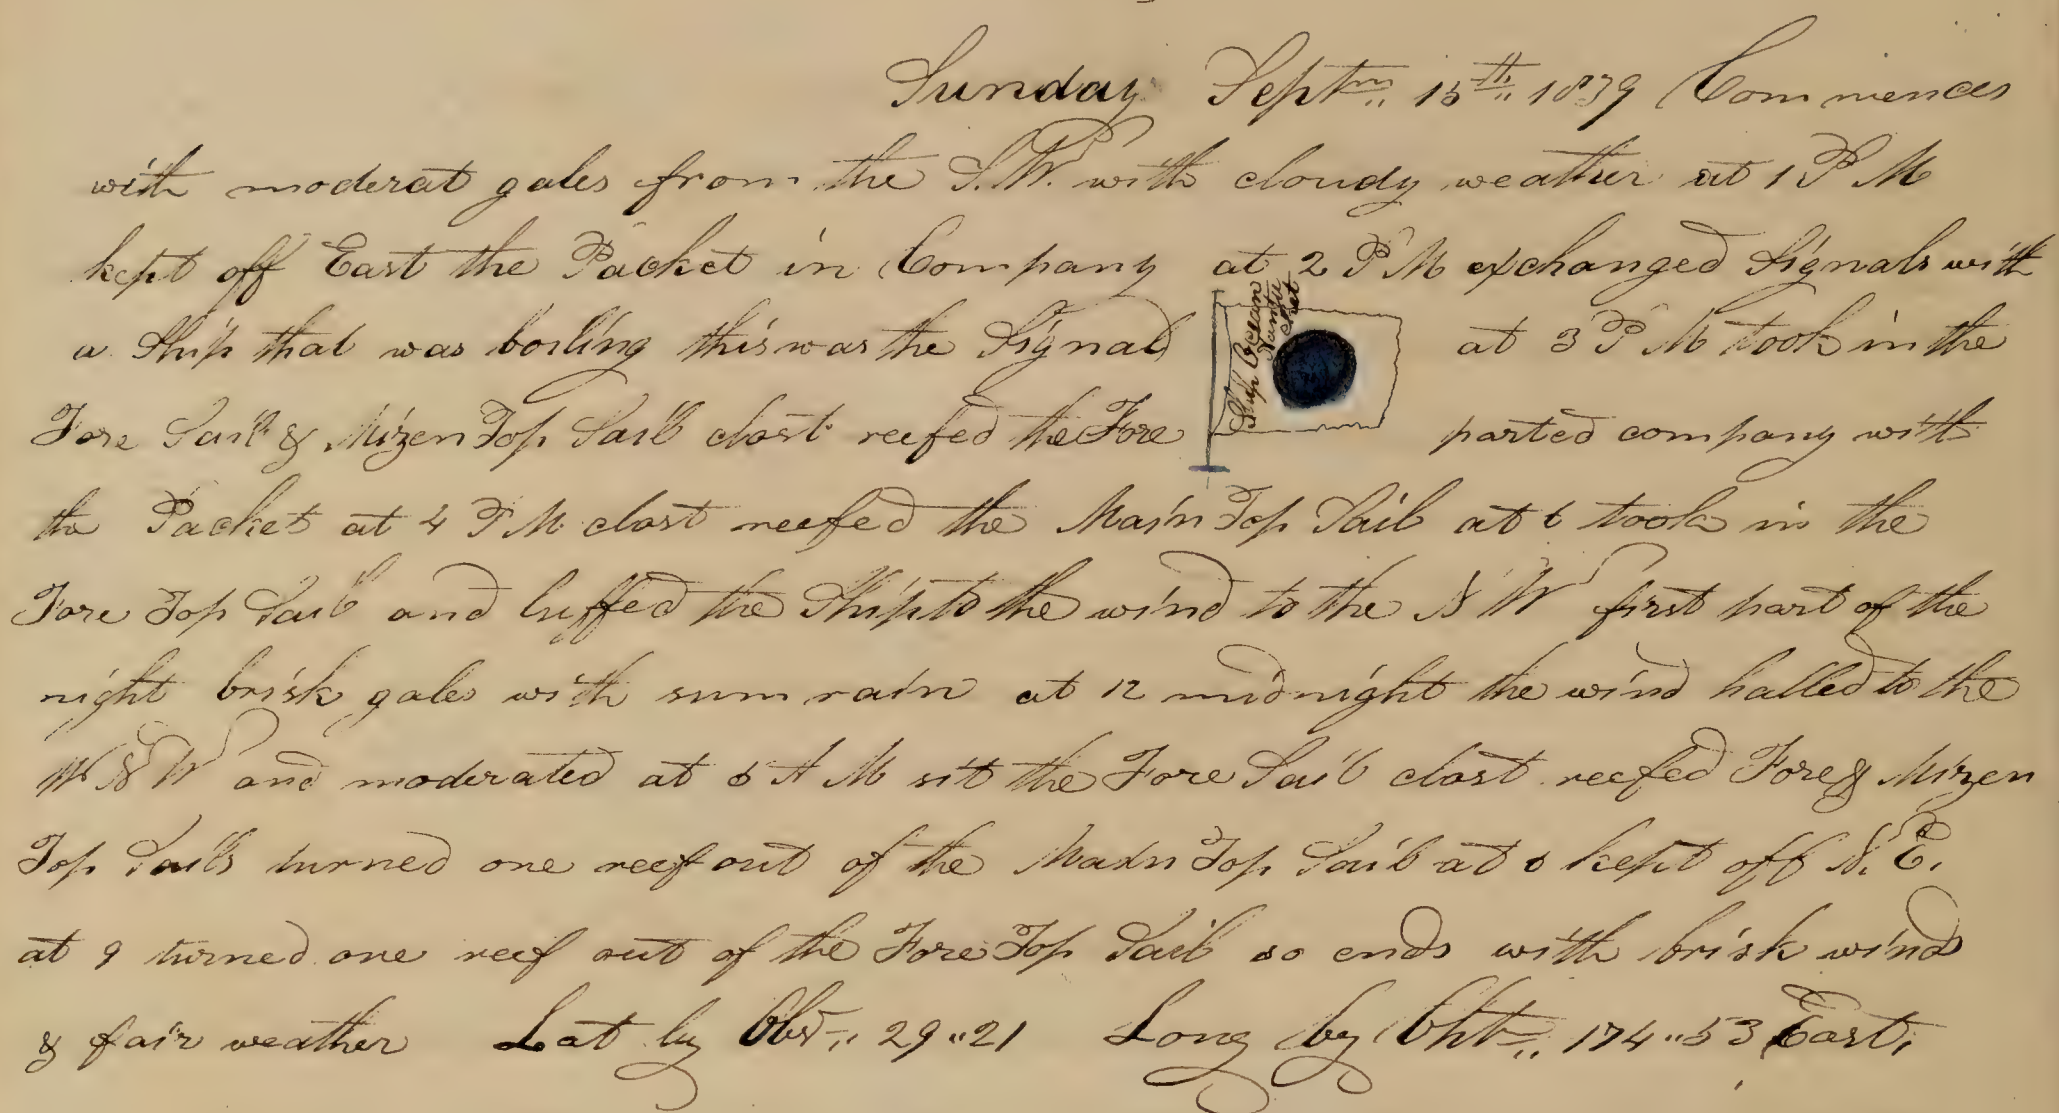 Sunday Septm 15th 1839 Commences
with moderat gales from the S.W. with cloudy weather at 1 P M
kept off East the Packet in Company at 2 P M exchanged Signals with
a Ship that was boiling this was the Signal at 3 P M took in the
Ship Ocean
Nantu
cket
Fore Sail & Mizen Top Sail clost reefed the Fore parted company with
the Packet at 4 P M clost reefed the Main Top Sail at 6 took in the
Fore Top Sail and luffed the Ship to the wind to the N W first part of the
night brisk gales with sum rain at 12 midnight the wind halled to the
W N W and moderated at 5 A M sit the Fore Sail clost reefed Fore & Mizen
Top Sails turned one reef out of the Main Top Sail at 6 kept off N. E.
at 9 turned one reef out of the Fore Top Sail so ends with brisk winds
& fair weather Lat by Obs 29 "21 Long by Cht 174 "53 East.